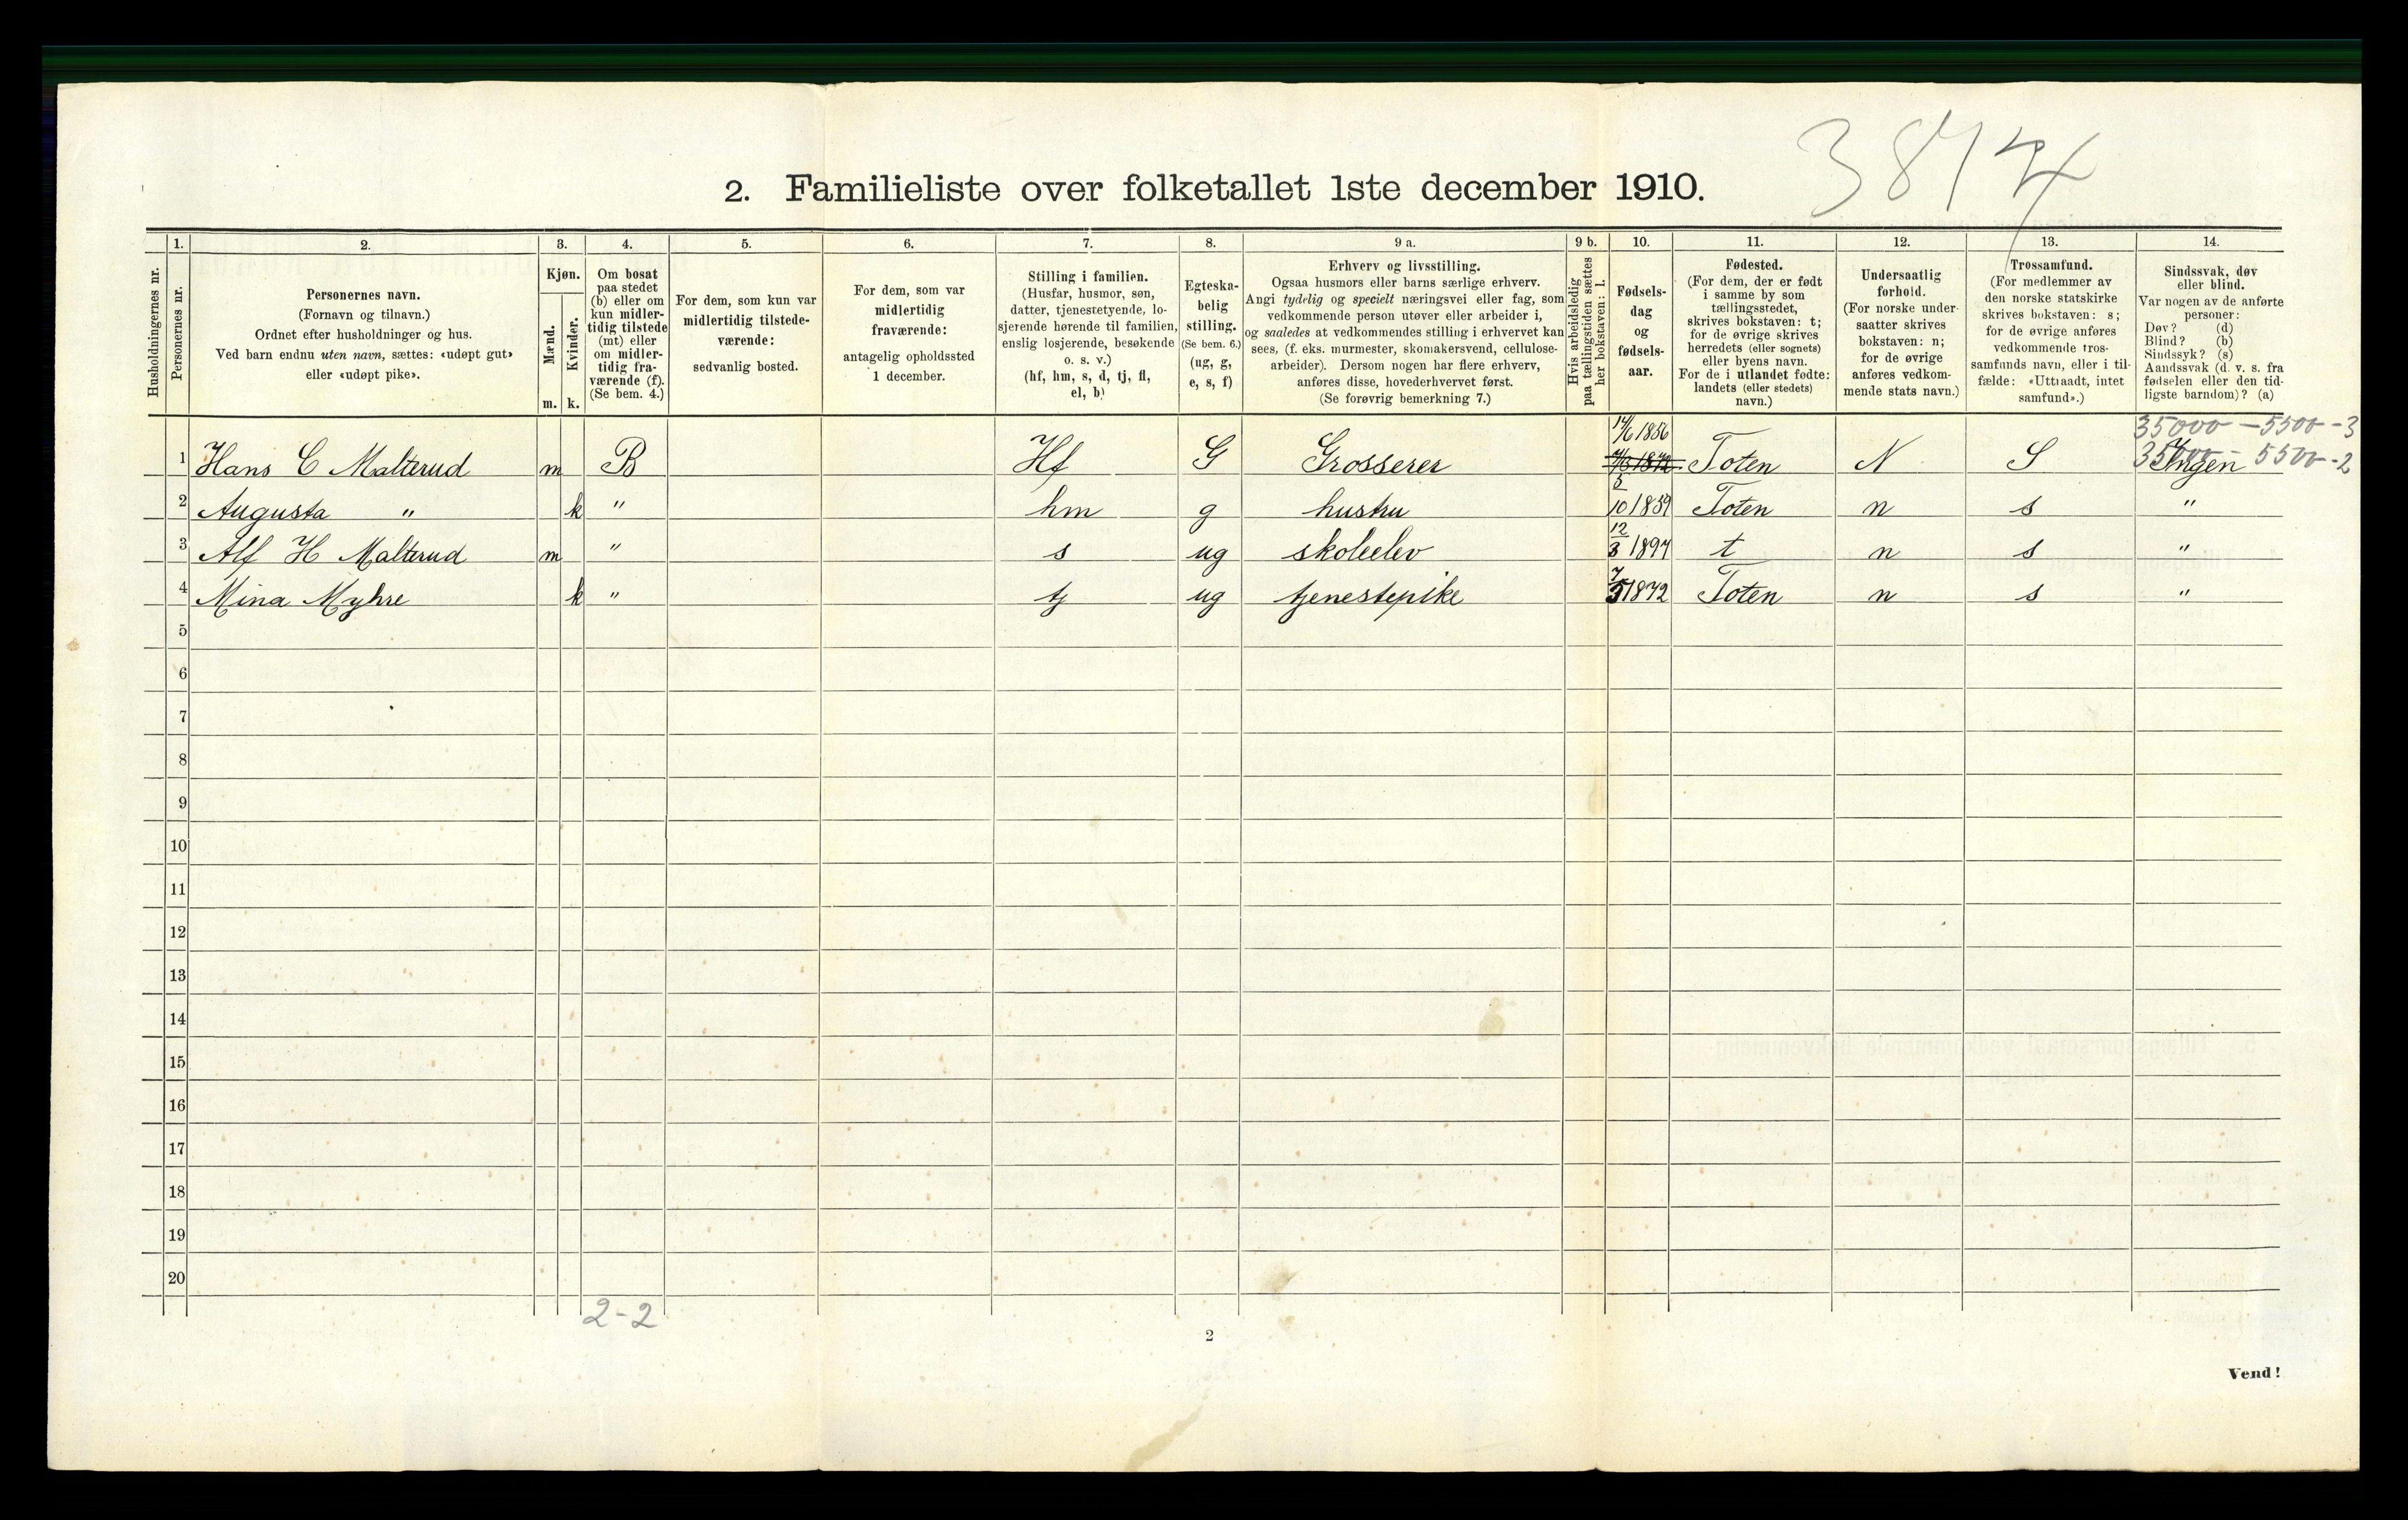 3874
2. Familieliste over folketallet 1ste december 1910.
1. 2. 3. 4. 5. 6. 7. 8. 9 a. 9 b. 10. 11. 12. 13. 14.
Husholdningernes nr.
Personernes nr.
Personernes navn.
(Fornavn og tilnavn.)
Ordnet efter husholdninger og hus.
Ved barn endnu uten navn, sættes: «udøpt gut»
eller «udøpt pike».
Kjøn.
Mænd.
Kvinder.
m. k.
Om bosat
paa stedet
(b) eller om
kun midler-
tidig tilstede
(mt) eller
om midler-
tidig fra-
værende (f).
(Se bem. 4.)
For dem, som kun var
midlertidig tilstede-
værende:
sedvanlig bosted.
For dem, som var
midlertidig
fraværende:
antagelig opholdssted
1 december.
Stilling i familien.
(Husfar, husmor, søn,
datter, tjenestetyende, lo-
sjerende hørende til familien,
enslig losjerende, besøkende
o. s. v.)
(hf, hm, s, d, tj, fl,
el, b)
Egteska-
belig
stilling.
(Se bem. 6.)
(ug, g,
e, s, f)
Erhverv og livsstilling.
Ogsaa husmors eller barns særlige erhverv.
Angi tydelig og specielt næringsvei eller fag, som
vedkommende person utøver eller arbeider i,
og saaledes at vedkommendes stilling i erhvervet kan
sees, (f. eks. murmester, skomakersvend, cellulose-
arbeider). Dersom nogen har flere erhverv,
anføres disse, hovederhvervet først.
(Se forøvrig bemerkning 7.)
Hvis arbeidsledig
paa tællingstiden sættes
her bokstaven: l.
Fødsels-
dag
og
fødsels-
aar.
Fødested.
(For dem, der er født
i samme by som
tællingsstedet,
skrives bokstaven: t;
for de øvrige skrives
herredets (eller sognets)
eller byens navn.
For de i utlandet fødte:
landets (eller stedets)
navn.)
Undersaatlig
forhold.
(For norske under-
saatter skrives
bokstaven: n;
for de øvrige
anføres vedkom-
mende stats navn.)
Trossamfund.
(For medlemmer av
den norske statskirke
skrives bokstaven: s;
for de øvrige anføres
vedkommende tros-
samfunds navn, eller i til-
fælde: «Uttraadt, intet
samfund».)
Sindssvak, døv
eller blind.
Var nogen av de anførte
personer:
Døv? (d)
Blind? (b)
Sindssyk? (s)
Aandssvak (d. v. s. fra
fødselen eller den tid-
ligste barndom)? (a)
14/6 1856 35000 - 5500 - 3
1 Hans C Malterud m B Hf G Grosserer Toten N S Ingen 35000 - 5500 - 2
2 Augusta " k " hm g hustru 5/10 1859 Toten n s "
3 Alf H Malterud m " s ug skoleelev 12/3 1897 t n s "
4 Mina Myhre k " tj ug tjenestepike 7/5 1872 Toten n s "
5
6
7
8
9
10
11
12
13
14
15
16
17
18
19
20
2-2
2
Vend!